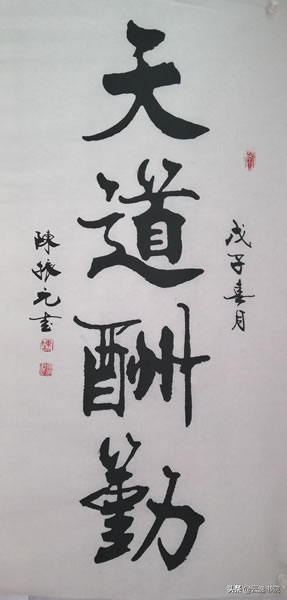 戊子春月
天道酬勤
陳振元書
头条